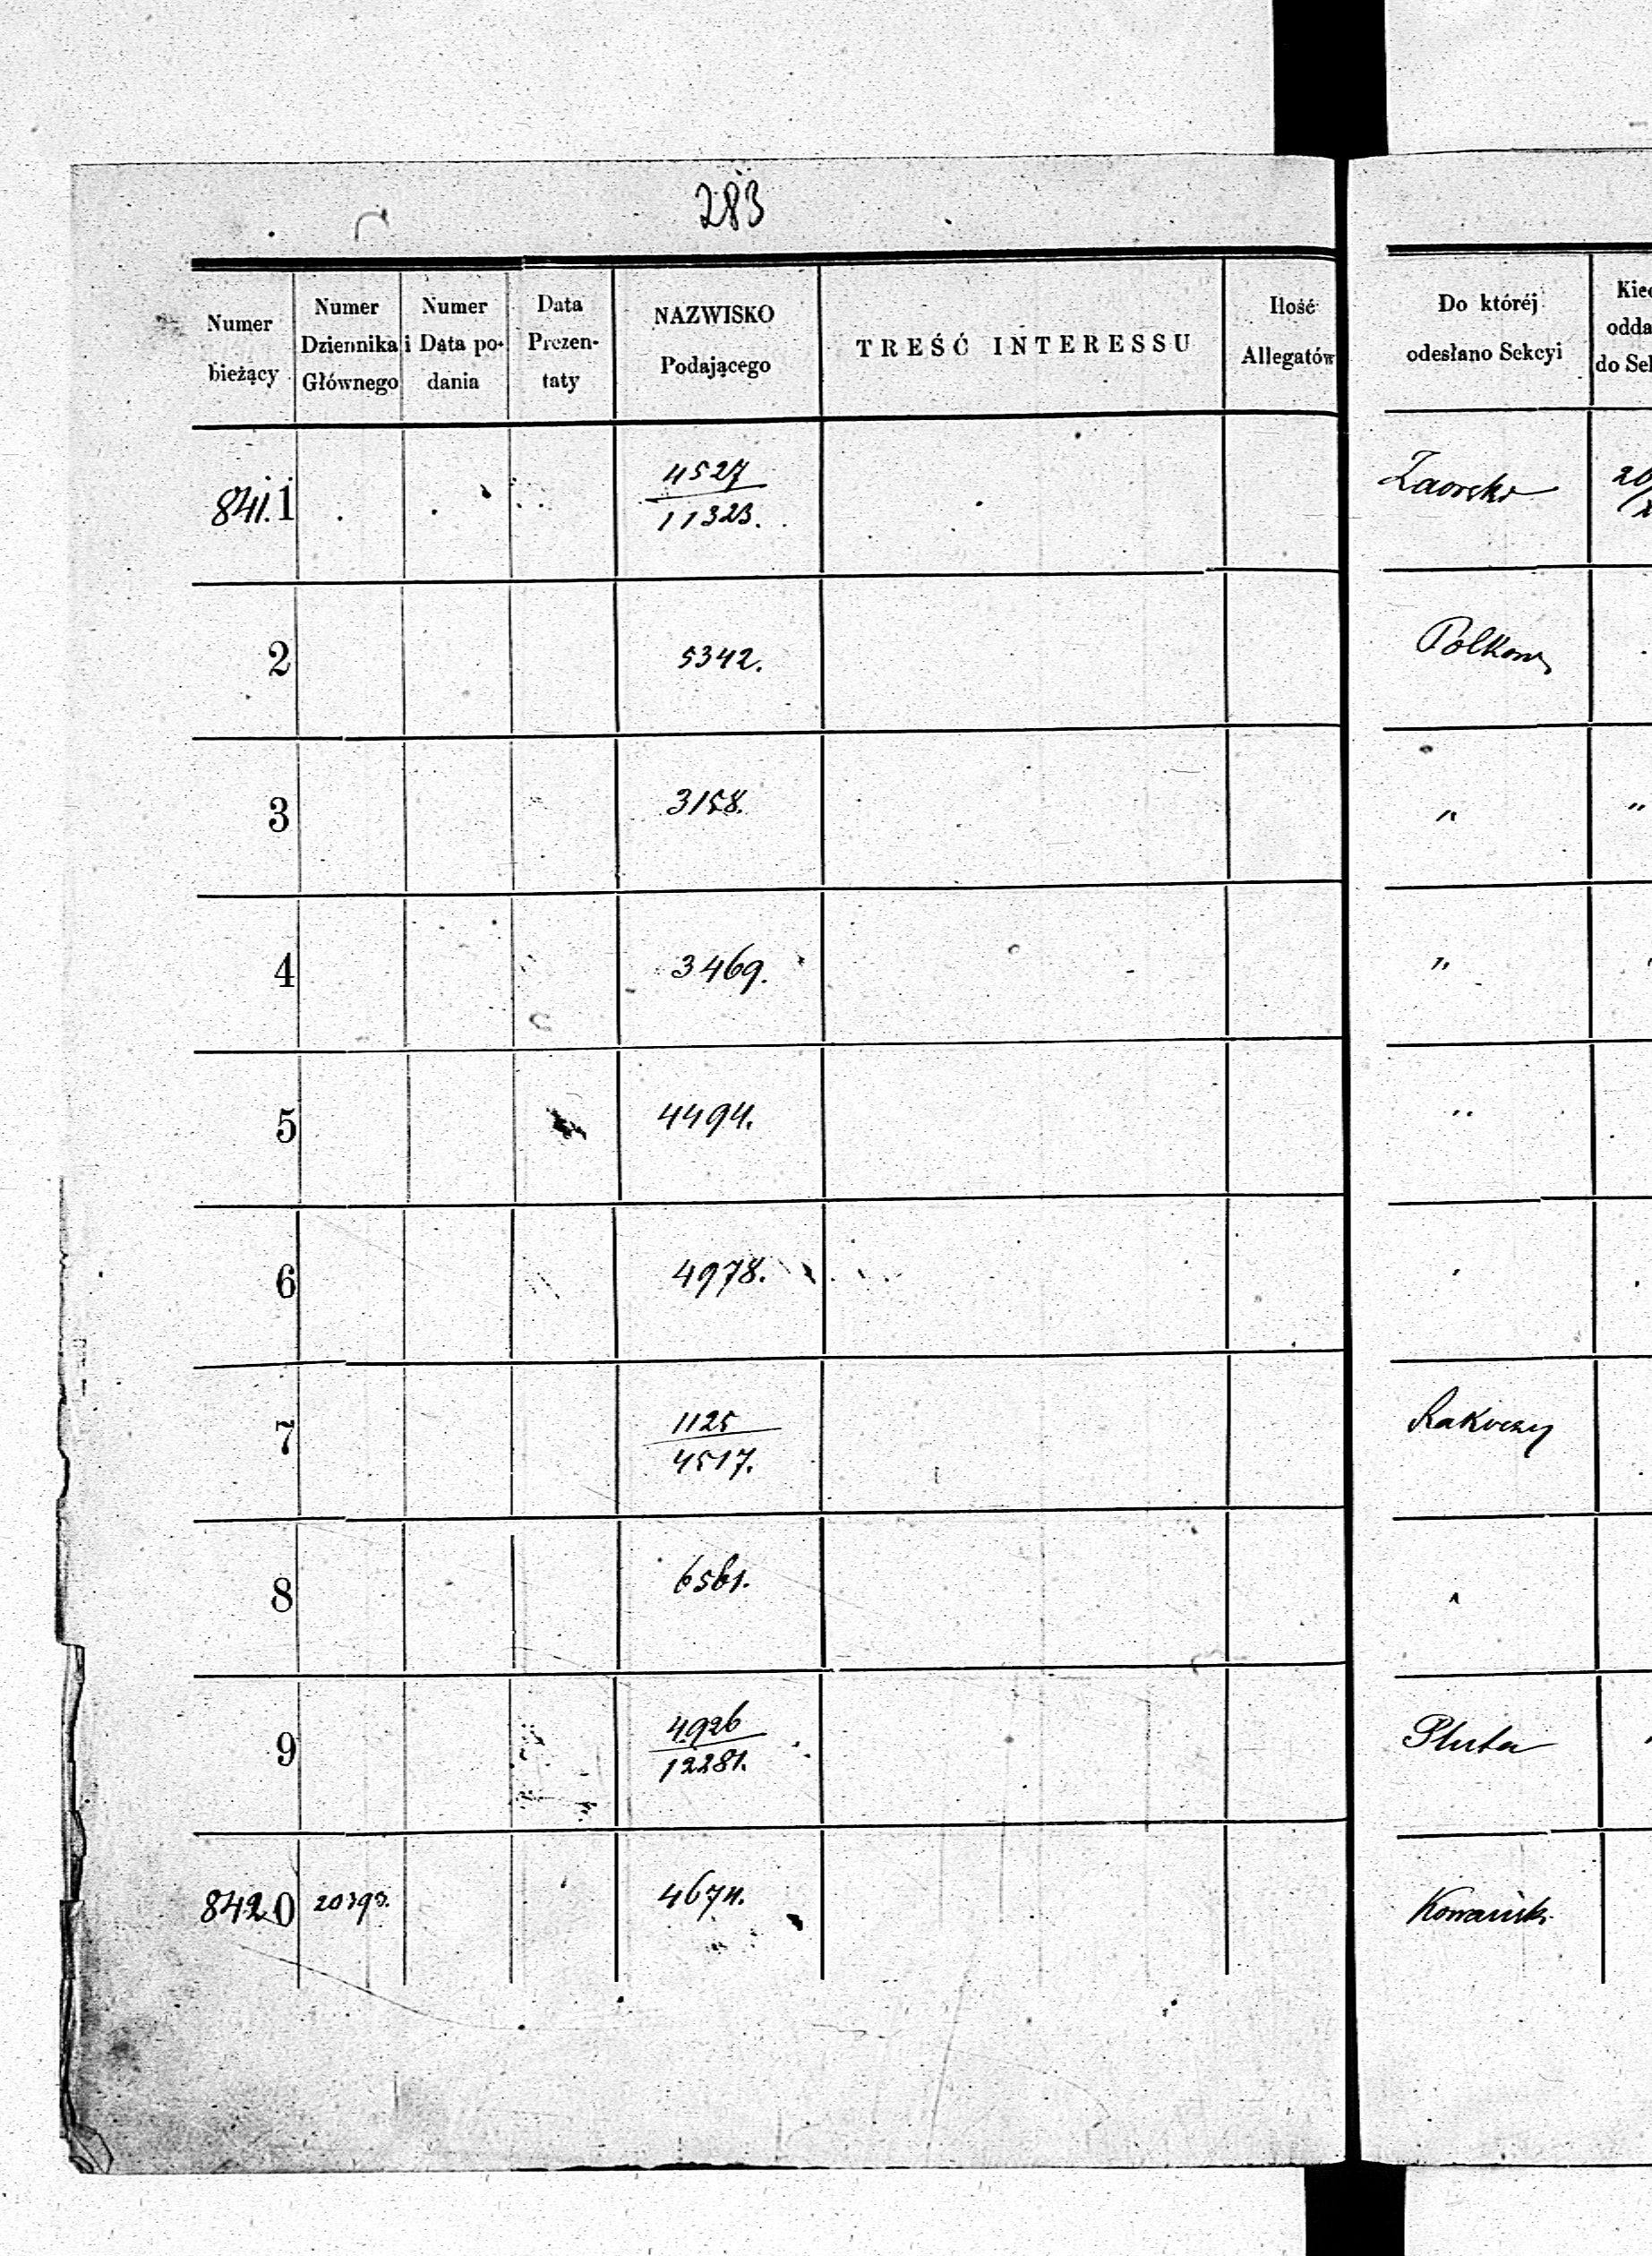 283
Numer bieżący | Numer Dziennika Głównego | Numer i Data podania | Data Prezentaty | NAZWISKO Podającego | TREŚĆ INTERESSU | Ilość Allegatów | Do któréj odesłano Sekcyi
841.1 | 4527 / 11323. | 20
2 | 5342.
3 | 3158. | " | "
4 | 3469. | "
5 | 4494. | "
6 | 4978.
7 | 1125 / 4517. | Rakoczy
8 | 6561.
9 | 4926 / 12281. | Pluta
8420 | 20393. | 4674.